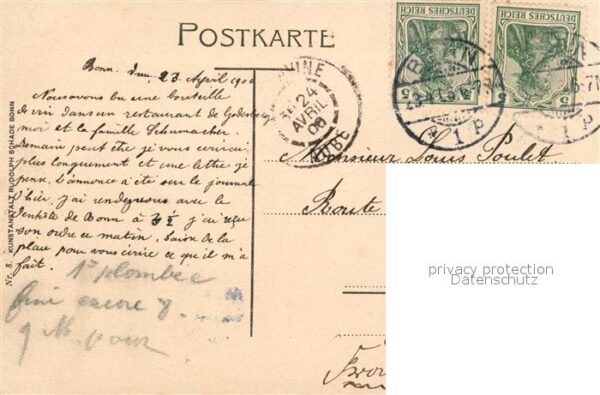 POSTKARTE
DEUTSCHES REICH
DEUTSCHES REICH
5 5
5
BONN
* 1 P
* 1 P
24
AVRIL
06
AUBE
Bonn. den 23 April 1906
Nous avons bu une bouteille
de vin dans un restaurant de Godesberg
moi et la famille Schumacher.
Demain peut être je vous écrirai
plus longuement et une lettre je
pense. L'annonce a été sur le journal
d'hier, j'ai rendez vous avec le
Dentiste de Bonn à 3 ½ j'ai reçu
son ordre ce matin.
place pour vous écrire ce qu'il m'a
fait.
1e plombée
encore 8.
9 M. pour
Monsieur Louis Poulet
Route
Nr. 3. KUNSTANSTALT RUDOLPH SCHADE BONN
privacy protection
Datenschutz